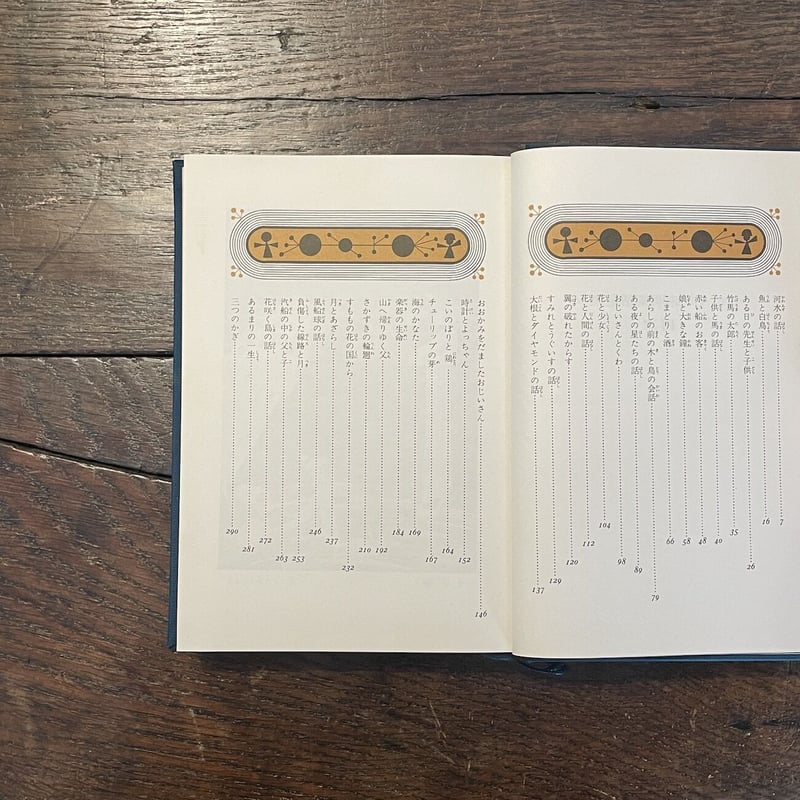 河水の話 7
魚と白鳥 16
ある日の先生と子供 26
竹馬の太郎 35
子供と馬の話 40
赤い船のお客 48
娘と大きな鐘 58
こまどりと酒 66
あらしの前の木と鳥の会話 79
ある夜の星たちの話 89
おじいさんとくわ 98
花と少女 104
花と人間の話 112
翼の破れたからす 120
すみれとうぐいすの話 129
大根とダイヤモンドの話 137
おおかみをだましたおじいさん 146
時計とよっちゃん 152
こいのぼりと鶏 164
チューリップの芽 167
海のかなた 169
楽器の生命 184
山へ帰りゆく父 192
さかずきの輪廻 210
すももの花の国から 232
月とあざらし 237
風船球の話 246
負傷した線路と月 253
汽船の中の父と子 263
花咲く島の話 272
あるまりの一生 281
三つのかぎ 290